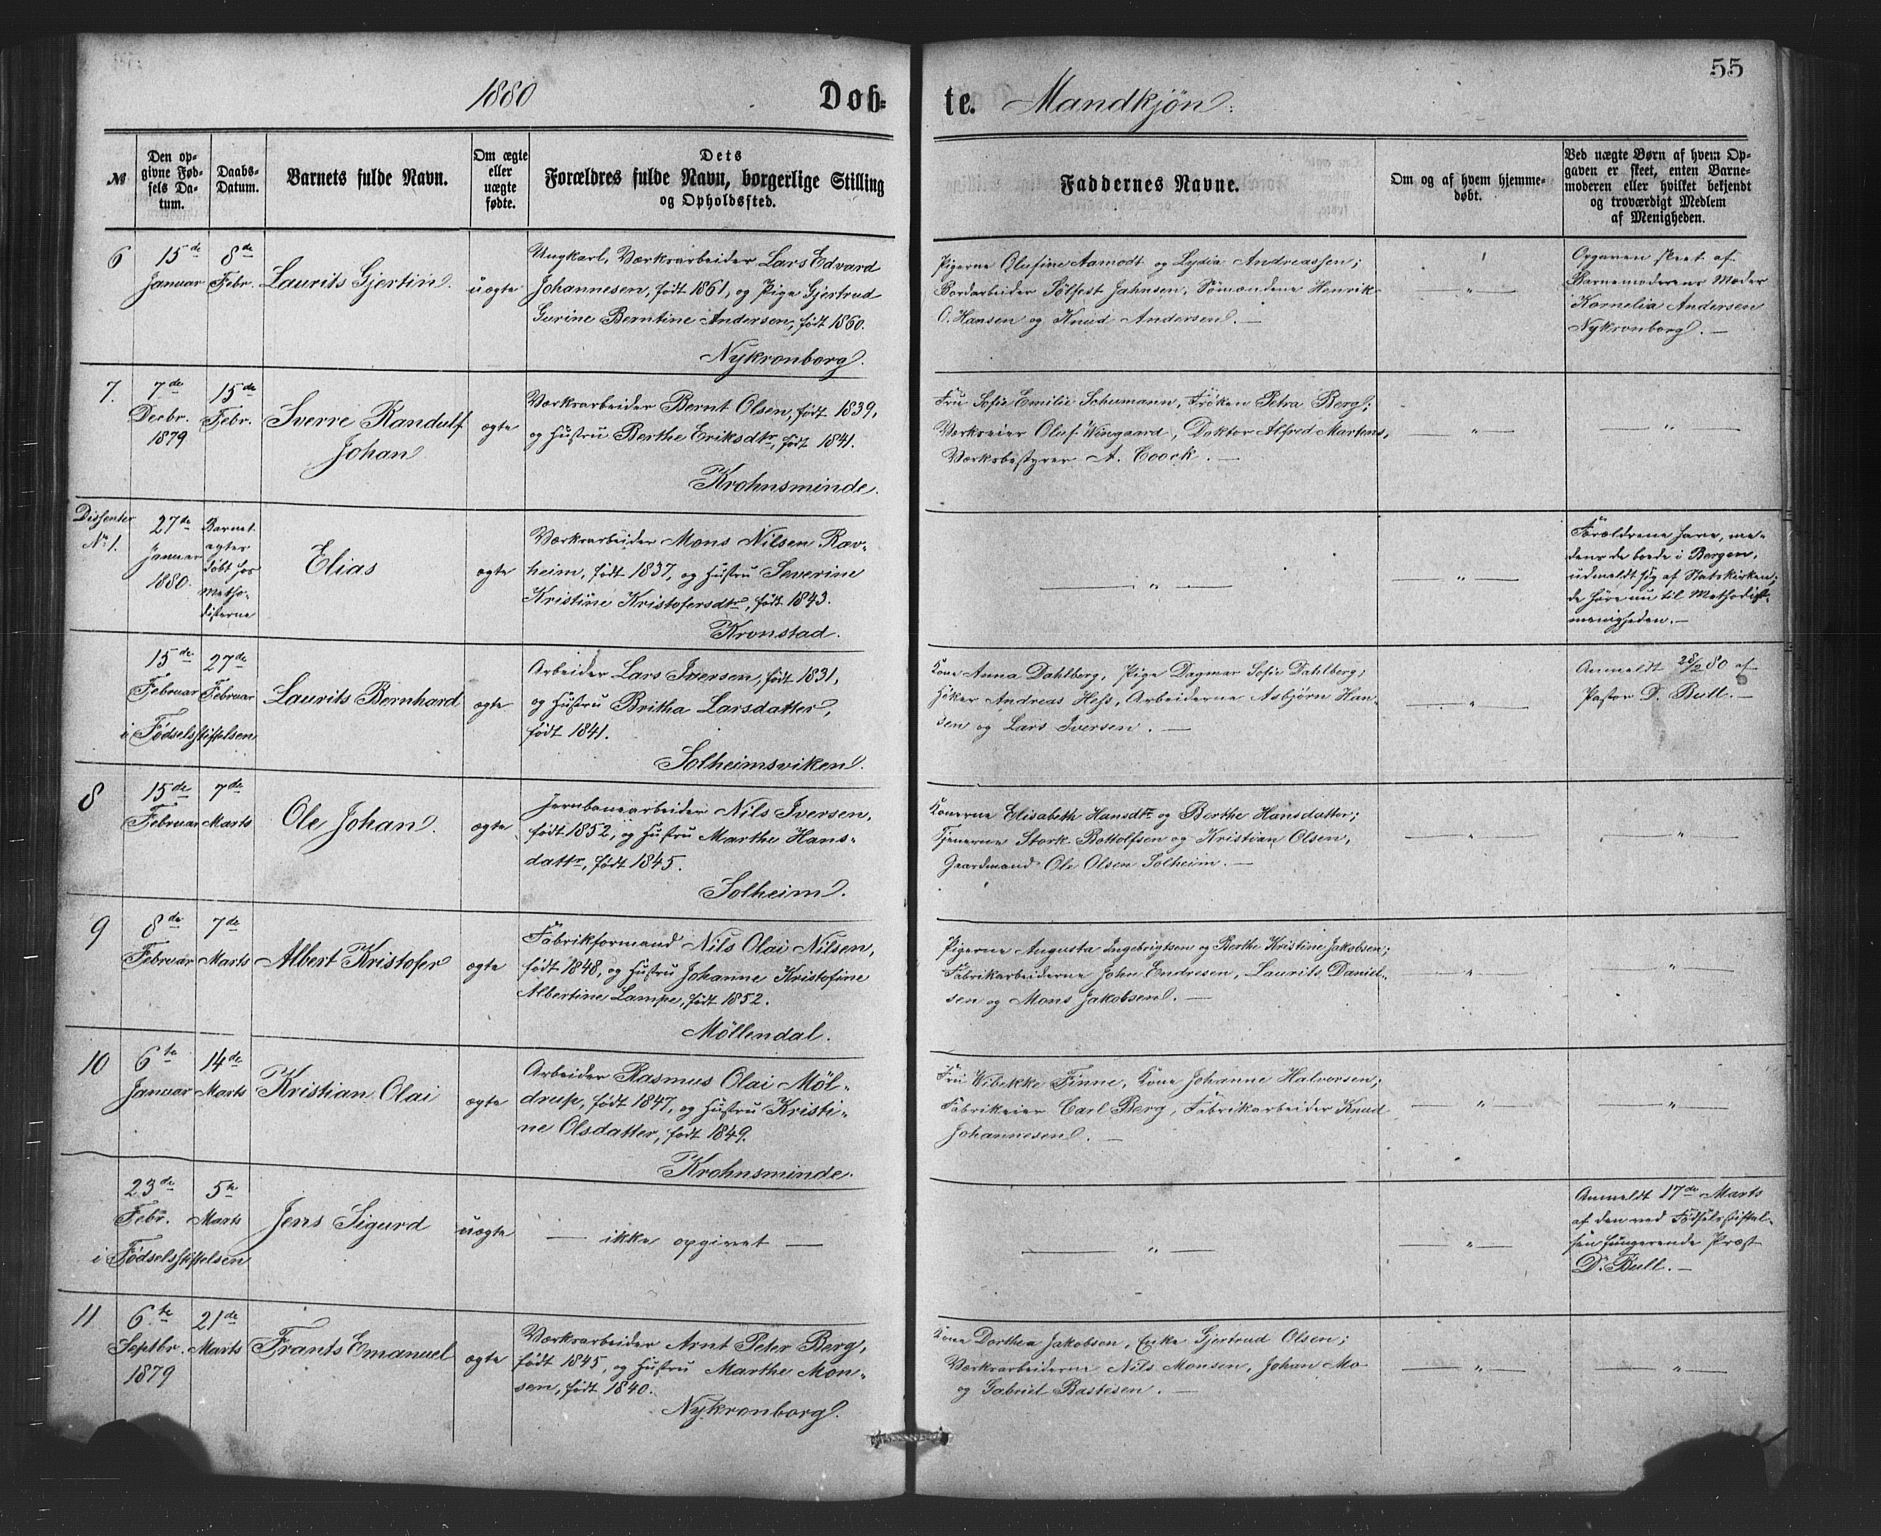 1880
Døb-
te.
Mandkjøn.
55
№
Den op-
givne Fød-
sels Da-
tum.
Daabs-
Datum.
Barnets fulde Navn.
Om ægte
eller
uægte
født.
Dets
Forældres fulde Navn, borgerlige Stilling
og Opholdssted.
Faddernes Navne.
Om og af hvem hjemme-
døbt.
Ved uægte Børn af hvem Op-
gaven er skeet, enten Barne-
moderen eller hvilket bekjendt
og troværdigt Medlem
af Menigheden.
6
15de
Januar
8de
Febr.
Laurits Gjertin.
uægte
Ungkarl, Værksarbeider Lars Edvard
Johannesen, født 1861, og Pige Gjertrud
Gurine Berntine Andersen, født 1860.
Nykronborg.
Pigerne Olufine Aamodt og Lydia Andreassen;
Bordarbeider Sølfest Jahnsen, Sømændene Henrik
O. Hansen og Knud Andersen. —
— " —
Opgaven skeet af
Barnemoderens Moder
Kornelia Andersen
Nykronborg. —
7.
7de
Decbr.
1879
15de
Febr.
Sverre Randulf
Johan
ægte
Værksarbeider Bernt Olsen, født 1839,
og Hustru Berthe Eriksdtr, født 1841.
Krohnsminde.
Fru Sofie Emilie Schumann, Frøken Petra Berg;
Værkseier Oluf Wingaard, Doktor Alfred Martens,
Værksbestyrer A. Coock. —
— " —
— " —
Dissenter
No 1.
27de
Januar
1880
Barnet
agtes
døbt hos
Metho-
disterne
Elias
ægte
Værksarbeider Mons Nilsen Rav-
heim, født 1837, og Hustru Severine
Kristine Kristofersdtr, født 1843.
Kronstad.
— " —
— " —
Forældrene have, me-
dens de boede i Bergen,
udmeldt sig af Statskirken;
de høre nu til Methodist-
menigheden. —
15de
Februar
27de
Februar
i Fødselsstiftelsen
Laurits Bernhard
ægte
Arbeider Lars Iversen, født 1831,
og Hustru Britha Larsdatter,
født 1841.
Solheimsviken.
Kone Anna Dahlberg, Pige Dagmar Sofie Dahlberg;
Høker Andreas Hess, Arbeiderne Asbjørn Han-
sen og Lars Iversen. —
— " —
Anmeldt 28/2 80 af
Pastor D. Bull. —
8
15de
Februar
7de
Marts
Ole Johan.
ægte
Jernbanearbeider Nils Iversen,
født 1852, og Hustru Marthe Hans-
dattr, født 1845.
Solheim.
Konerne Elisabeth Hansdtr og Berthe Hansdatter;
Tjenerne Stork Bottolfsen og Kristian Olsen,
Gaardmand Ole Olsen Solheim. —
— " —
— " —
9
8de
Februar
7de
Marts
Albert Kristofer
ægte
Fabrikformand Nils Olai Nilsen,
født 1848, og Hustru Johanne Kristofine
Albertine Lampe, født 1852.
Möllendal.
Pigerne Augusta Ingebrigtsen og Berthe Kristine Jakobsen;
Fabrikarbeiderne John Endresen, Laurits Daniel-
sen og Mons Jakobsen. —
— " —
— " —
10
6te
Januar
14de
Marts
Kristian Olai
ægte
Arbeider Rasmus Olai Möl-
drup, født 1847, og Hustru Kristi-
ne Olsdatter, født 1849.
Krohnsminde.
Fru Wibekke Finne, Kone Johanne Halvorsen;
Fabrikeier Carl Berg, Fabrikarbeider Knud
Johannesen. —
— " —
— " —
23de
Febr.
5te
Marts
i Fødselsstiftelsen
Jens Sigurd
uægte
— ikke opgivet —
— " —
— " —
Anmeldt 17de Marts
af den ved Fødselsstiftel-
sen fungerende Præst
D. Bull. —
11
6te
Septbr.
1879
21de
Marts
Frants Emanuel
ægte
Værksarbeider Arnt Peter Berg,
født 1845, og Hustru Marthe Mon-
sen, født 1840.
Nykronborg.
Kone Dorthea Jakobsen, Enke Gjertrud Olsen;
Værksarbeiderne Nils Monsen, Johan Mo
og Gabriel Bastesen. —
— " —
— " —